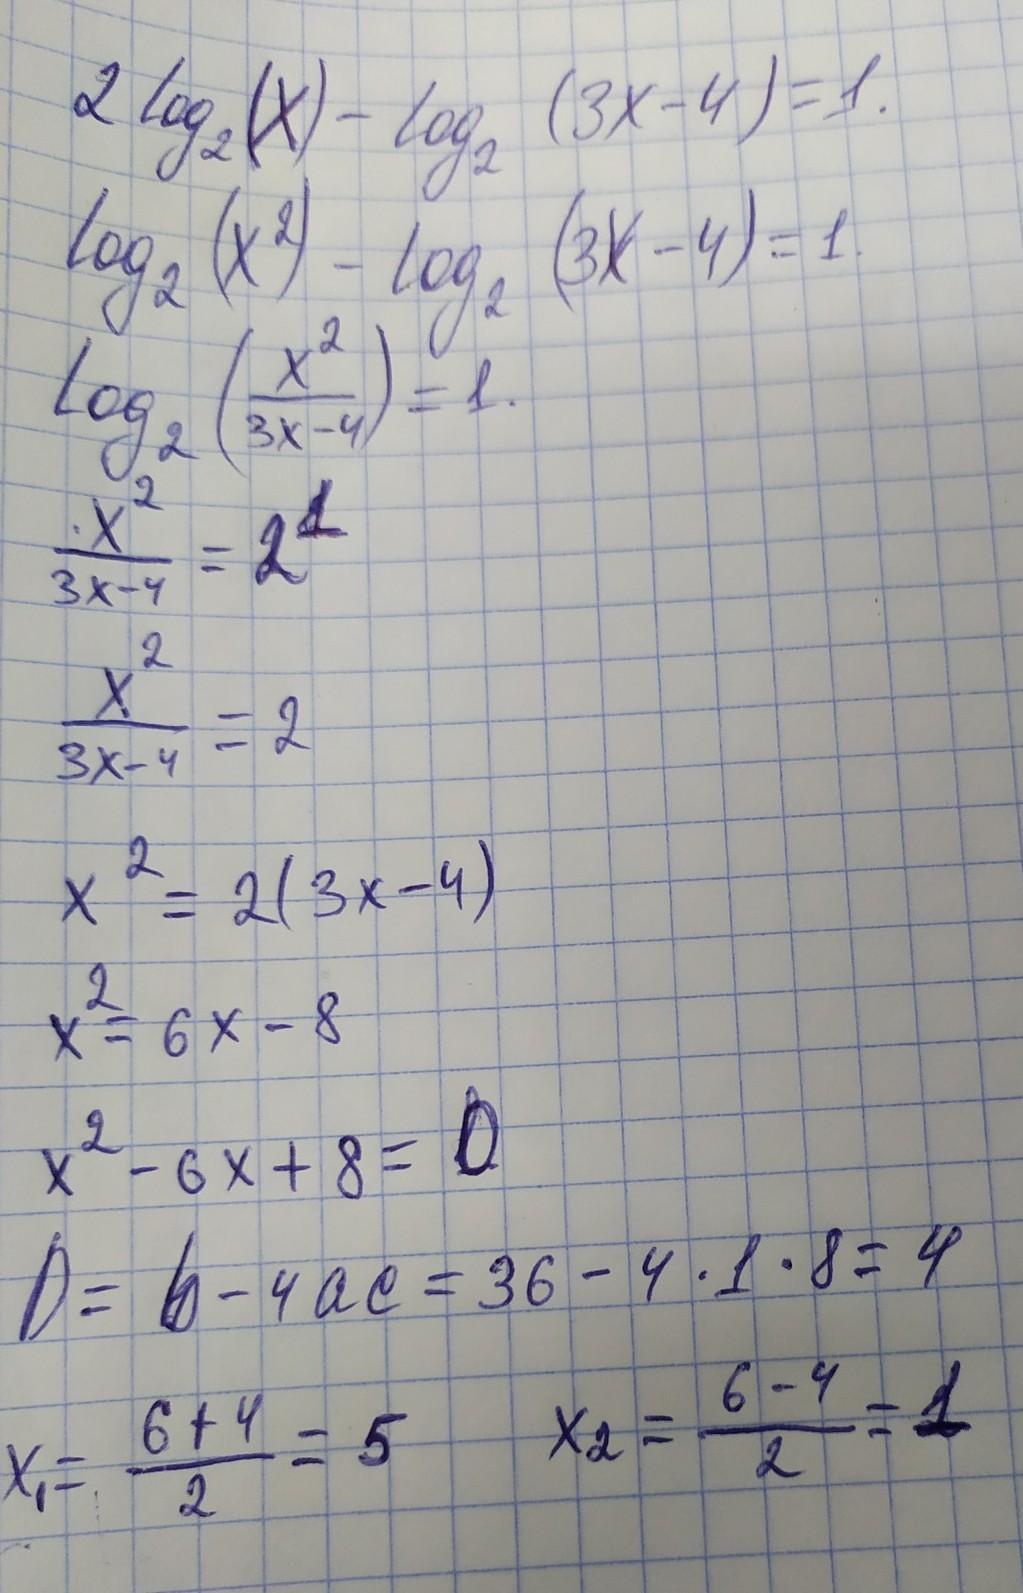 2 log₂(x) - log₂ (3x-4)=1.
log₂(x²) - log₂ (3x-4)=1.
log₂(x²/(3x-4))=1.
x²/(3x-4) = 2¹
x²/(3x-4) = 2
x² = 2(3x-4)
x² = 6x-8
x² - 6x + 8 = 0
D = b - 4ac = 36 - 4·1·8 = 4
x₁ = (6+4)/2 = 5 x₂ = (6-4)/2 = 1